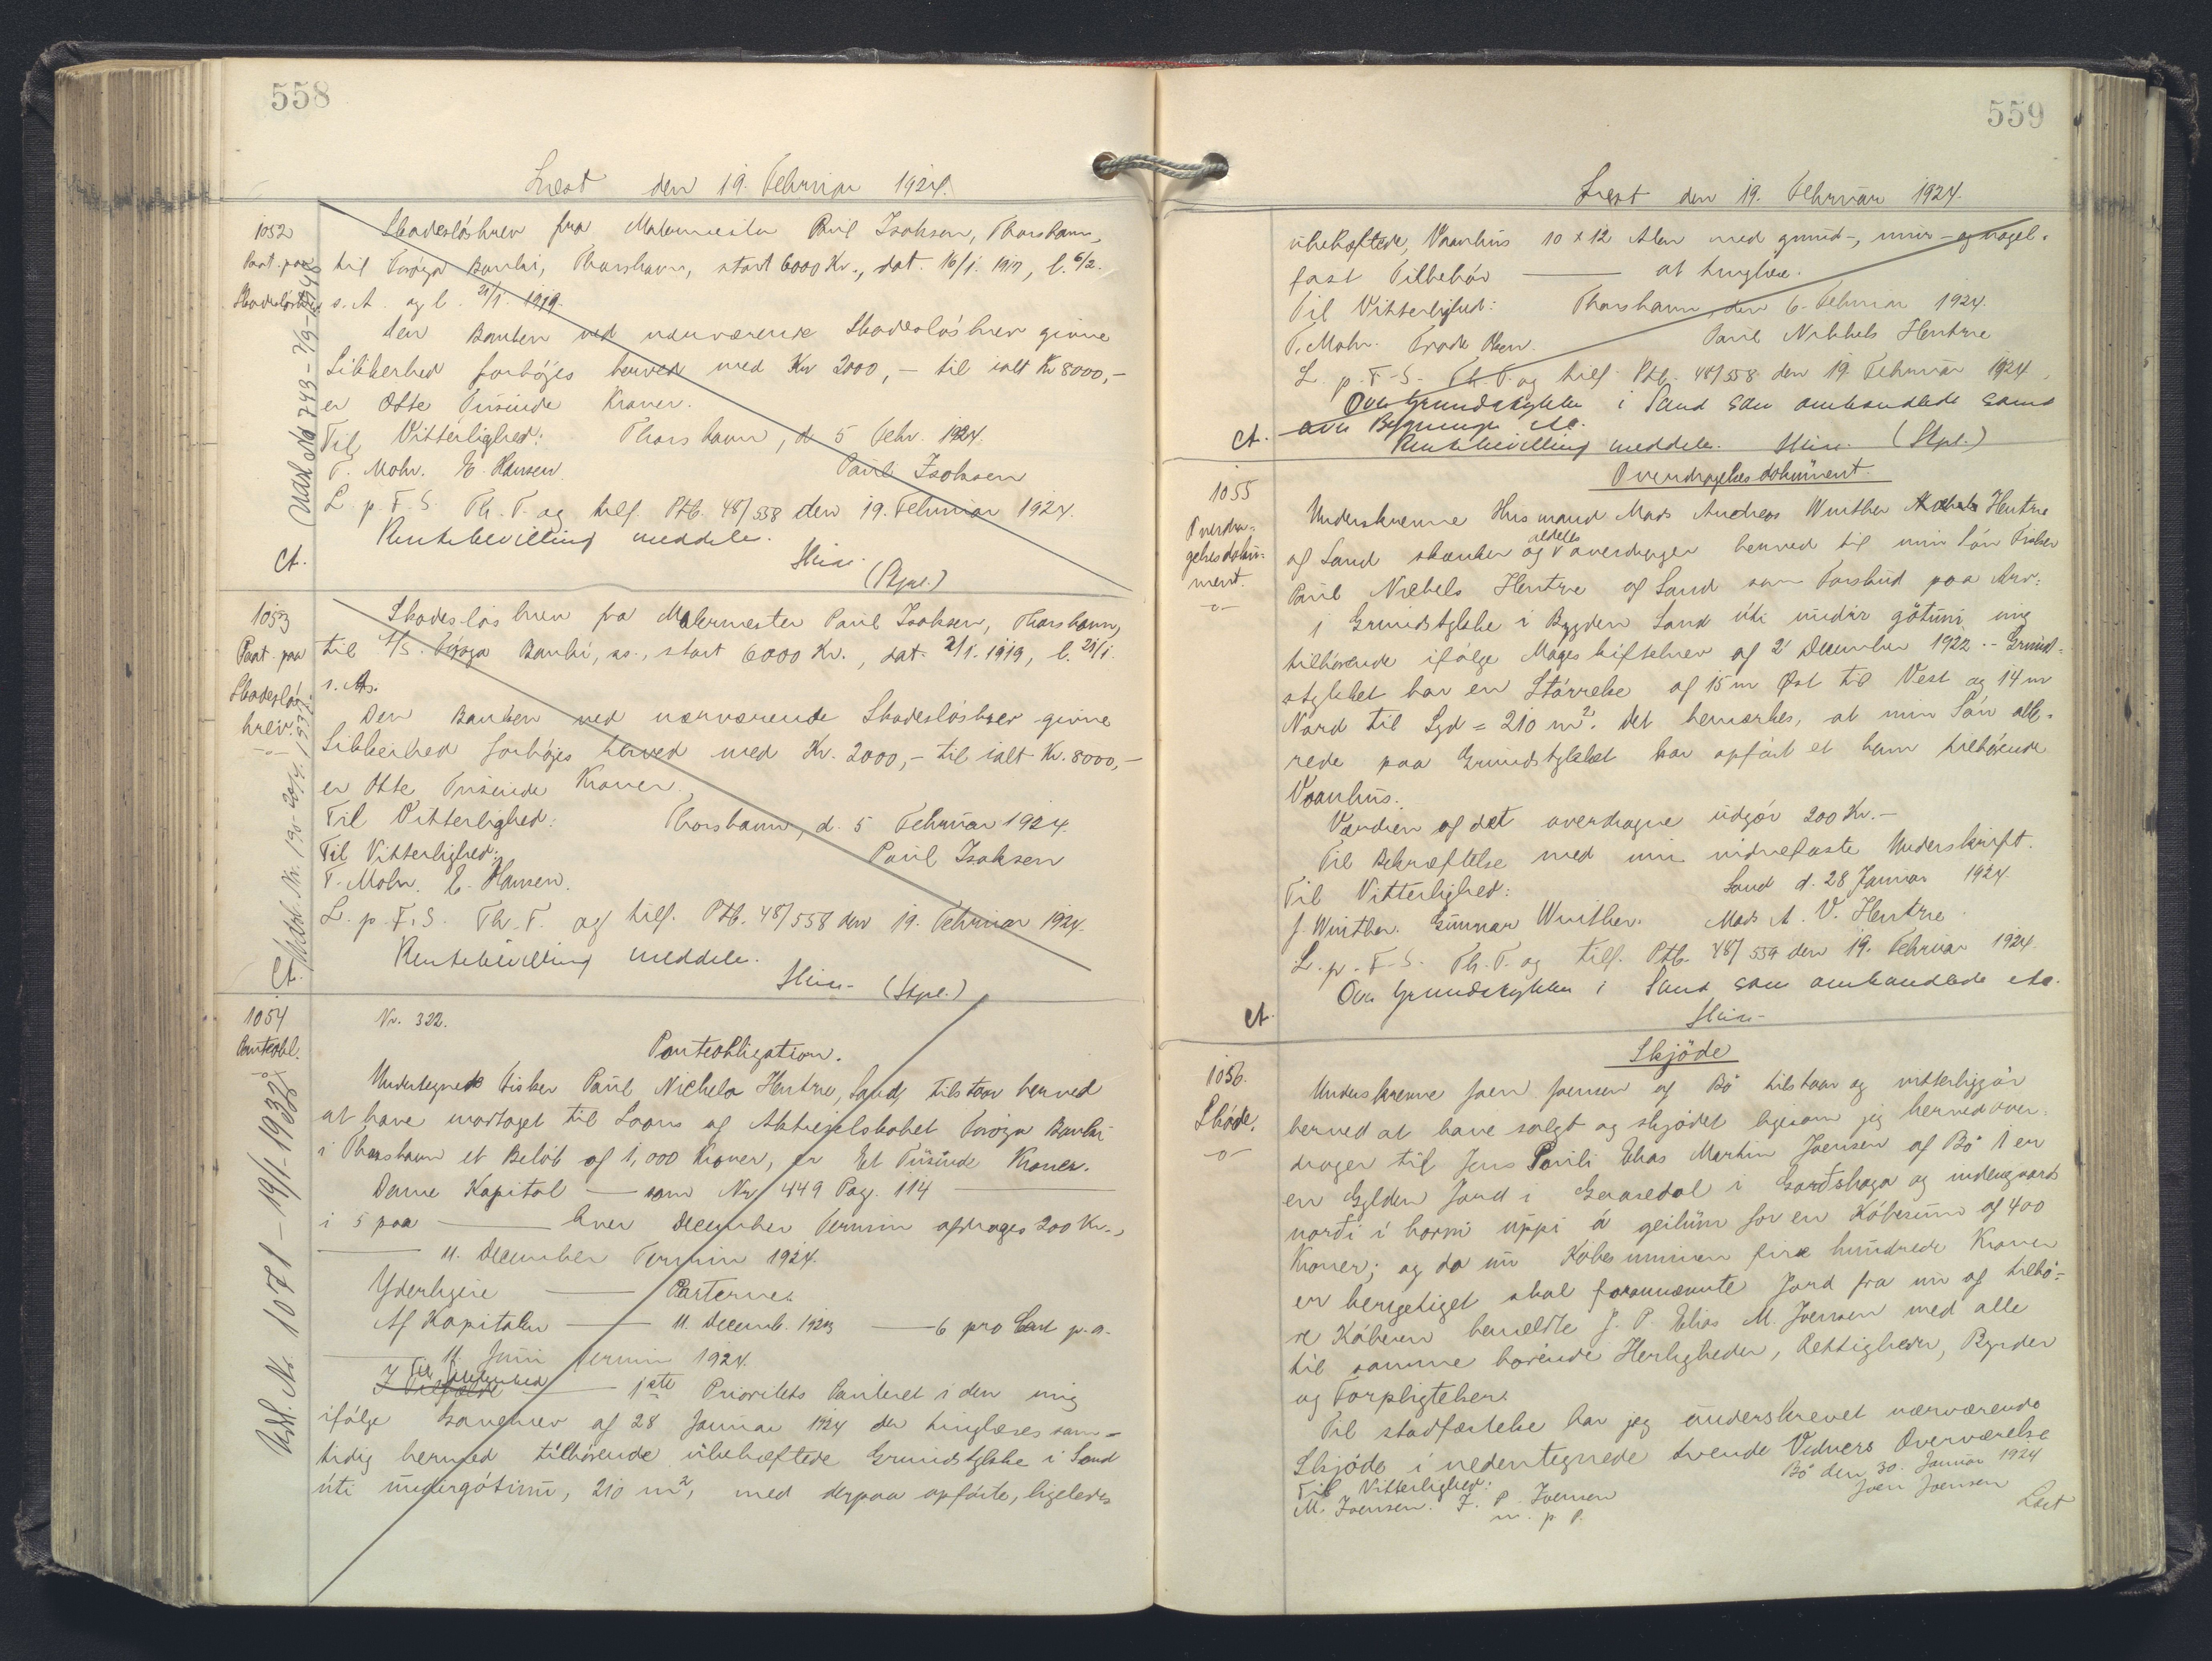 558
Læst den 19. Februar 1924.
1052
Paat. paa
Skadesløsbr.
Udsl. No 743 - 7/9-1948
Skadesløsbrev fra Malermester Poul Isaksen, Thorshavn,
til Føroya Banki, Thorshavn, stort 6000 Kr., dat. 16/1. 1917, l. 6/2.
s. A. og l. 21/1. 1919.
Den Banken ved nærværende Skadesløsbrev givne
Sikkerhed forhøjes herved med Kr 2000,- til ialt Kr 8000,-
er Otte Tusinde Kroner.
Til Vitterlighed: Thorshavn, d. 5 Febr. 1924.
T. Mohr. E. Hansen. Poul Isaksen
L. p. F. S. Th. T. og tilf. Ptb. 48/558 den 19. Februar 1924.
Rentebevilling meddeles.
Ct.
(Stpl.)
1053
Paat. paa
Skadesløs
brev.
Udsl. Nr. 190-20/4. 1937.
Skadesløsbrev fra Malermester Poul Isaksen, Thorshavn,
til A/S. Føroya Banki, ss., stort 6000 Kr., dat. 2/1. 1919, l. 21/1.
s. As.
Den Banken ved nærværende Skadesløsbrev givne
Sikkerhed forhøjes herved med Kr. 2000,- til ialt Kr. 8000,-
er Otte Tusinde Kroner.
Til Vitterlighed: Thorshavn, d. 5 Februar 1924.
Til Vitterlighed: Poul Isaksen
T. Mohr. E. Hansen.
L. p. F. S. Th. T. og tilf. Ptb. 48/558 den 19. Februar 1924.
Rentebevilling meddeles.
Ct.
(Stpl.)
1054
Panteobl.
Udsl. Nr. 1071 - 19/1-1932
Nr. 322.
Panteobligation.
Undertegnede Fisker Poul Nichels Hentze, Sand, tilstaar herved
at have modtaget til Laans af Aktieselskabet Føroya Banki
i Thorshavn et Beløb af 1,000 Kroner, er Et Tusinde Kroner.
Denne Kapital — som Nr. 449 Pag. 114 —
i 5 paa — hver December Termin afdrages 200 Kr.,
— 11. December Termin 1924.
Yderligere — Parterne.
Af Kapitalen — 11. Decemb. 1923 — 6 pro Cent p. a.
— 11 Juni Termin 1924.
Til Sikkerhed
I Tilfælde — 1ste Prioritets Panteret i den mig
ifølge Gavebrev af 28 Januar 1924 der tinglæses sam-
tidig hermed tilhørende ubehæftede Grundstykke i Sand
úti undirgøtuni, 210 m², med derpaa opførte, ligeledes
559
Læst den 19. Februar 1924.
ubehæftede, Vaanhus 10 x 12 Alen med grund-, mur- og nagel-
fast Tilbehør — at tinglæse.
Til Vitterlighed: Thorshavn, den 6. Februar 1924.
T. Mohr. Poul Nikkels Hentze
L. p. F. S. Th. T. og tilf. Ptb. 48/558 den 19. Februar 1924.
Over Grundstykket i Sand som ombandlede samt
over Bygninge etc.
Ct.
Rentebevilling meddeles. (Stpl.)
1055
Overdra-
gelsesdoku-
ment.
-o-
Overdragelsesdokument.
Underskrevne Husmand Mads Andreas Winther Hentze
af Sand skænker og aldeles overdrager herved til min Søn Fisker
Poul Nichels Hentze af Sand som Forskud paa Arv:
1 Grundstykke i Bygden Sand úti undir gøtuni mig
tilhørende ifølge Mageskiftebrev af 2' December 1922. - Grund-
stykket har en Størrelse af 15 m Øst til Vest og 14 m
Nord til Syd = 210 m². Det bemærkes, at min Søn alle-
rede paa Grundstykket har opført et ham tilhørende
Vaanhus.
Værdien af det overdragne udgør 200 Kr.-
Til Bekræftelse med min vidnefaste Underskrift.
Til Vitterlighed: Sand d. 28 Januar 1924
J. Winther. Gunnar Winther. Mads A. V. Hentze.
L. p. F. S. Th. T. og tilf. Ptb. 48/559 den 19. Februar 1924.
Over Grundstykket i Sand som ombandlede etc.
Ct
1056.
Skøde.
-o-
Skjøde
Underskrevne Joen Joensen af Bø tilstaar og vitterliggør
herved at have solgt og skjødet ligesom jeg herved over-
drager til Jens Pauli Elias Martin Joensen af Bø 1 en
en Gylden Jord i Gaasedal i Garðshaga og indengaards
norði í horni uppi á geilum for en Købesum af 400
Kroner; og da nu Købesummen fire hundrede Kroner
er berigtiget skal forannævnte Jord fra nu af tilhø-
re Køberen bemeldte J. P. Elias M. Joensen med alle
til samme hørende Herligheder, Rettigheder, Byrder
og Forpligtelser.
Til stadfæstelse har jeg underskrevet nærværende
Skjøde i nedentegnede tvende Vidners Overværelse
Til Vitterlighed: Bø den 30. Januar 1924
M. Joensen. J. P. Joensen Joen Joensen
m. p. P. Læst